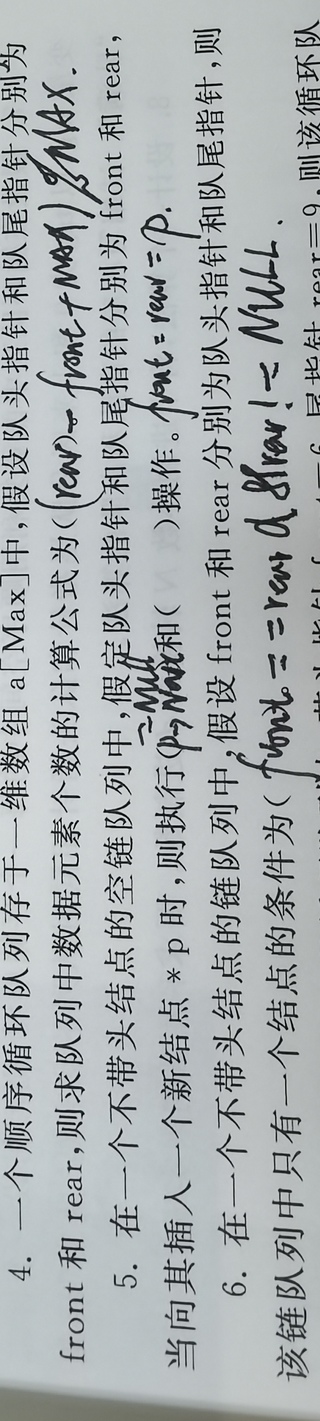 4. 一个顺序循环队列存于一维数组 a[Max]中,假设队头指针和队尾指针分别为
front 和 rear,则求队列中数据元素个数的计算公式为((rear - front + MAX) % MAX.
5. 在一个不带头结点的空链队列中,假定队头指针和队尾指针分别为 front 和 rear,
当向其插入一个新结点 * p 时,则执行(p->Next = Null 和( )操作。front = rear = p.
6. 在一个不带头结点的链队列中,假设 front 和 rear 分别为队头指针和队尾指针,则
该链队列中只有一个结点的条件为(front == rear && rear! = NULL.
尾指针 rear=9,则该循环队